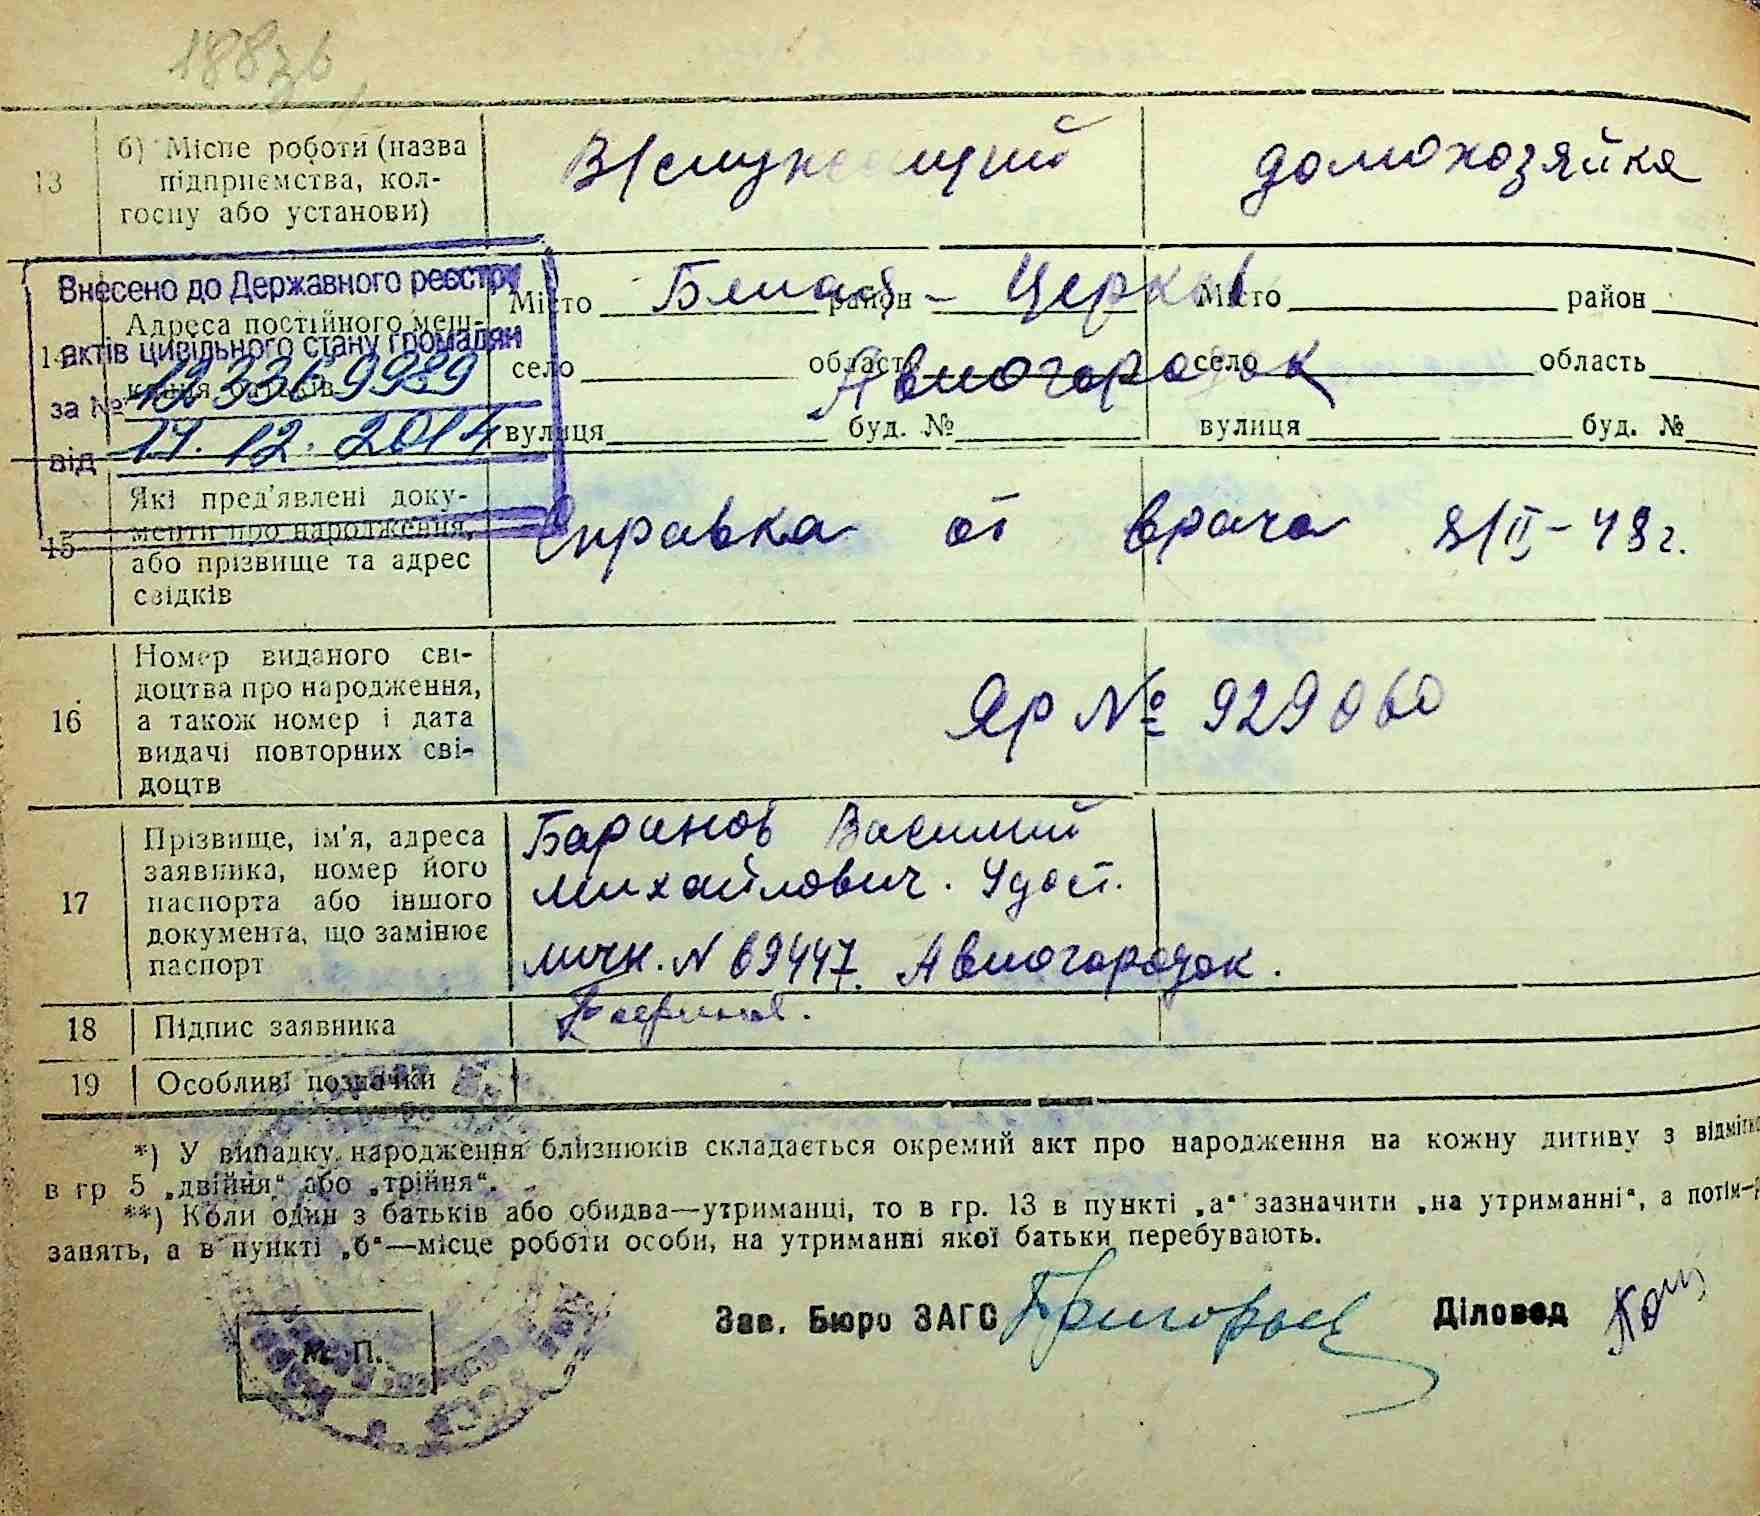 188зв
13
б) Місце роботи (назва
підприємства, кол-
госпу або установи)
В/служащий
домохозяйка
Внесено до Державного реєстру
актів цивільного стану громадян
за № 19336 9989
від 17.12.2014
14
Адреса постійного меш-
кання батьків
Місто Белая район - Церковь
село область Авиогородок
вулиця буд. №
Місто район
село область
вулиця буд. №
15
Які пред'явлені доку-
менти про народження,
або прізвище та адрес
свідків
Справка от врача 8/II-48г.
16
Номер виданого сві-
доцтва про народження,
а також номер і дата
видачі повторних сві-
доцтв
Яр № 929060
17
Прізвище, ім'я, адреса
заявника, номер його
паспорта або іншого
документа, що замінює
паспорт
Баринов Василий
Михайлович. Удост.
личн. N 69447. Авиогородок.
18
Підпис заявника
Баринов.
19
Особливі позначки
*) У випадку народження близнюків складається окремий акт про народження на кожну дитину з відмітко
в гр 5 „двійня“ або „трійня“.
**) Коли один з батьків або обидва—утриманці, то в гр. 13 в пункті „а“ зазначити „на утриманні“, а потім—р
занять, а в пункті „б“—місце роботи особи, на утриманні якої батьки перебувають.
М. П.
Зав. Бюро ЗАГС Григорьев Діловод